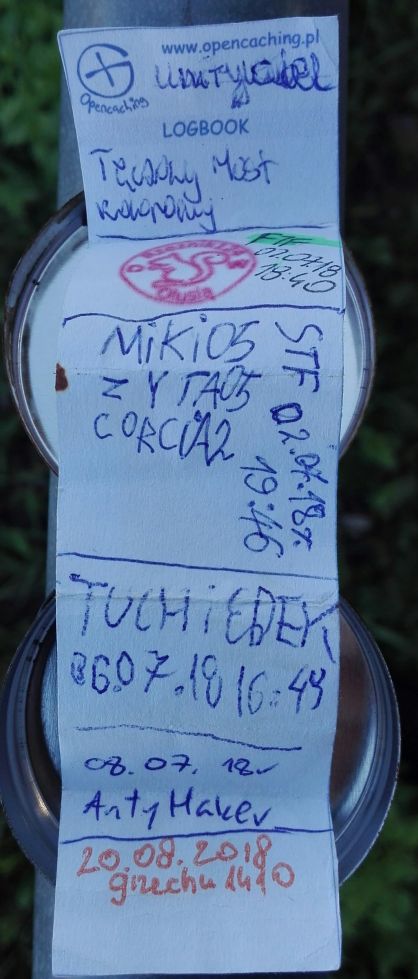 www.opencaching.pl
Opencaching
LOGBOOK
Tęczowy Most
kolorowy
FTF
01.07.18
18:40
Olusia
MiKi05
Z YTA05
CORCIA2
STF 02.07.18r.
19:46
TUCHiEDEK
06.07.18 16:44
08.07. 18r
AntyHaker
20.08.2018
grzechu1410